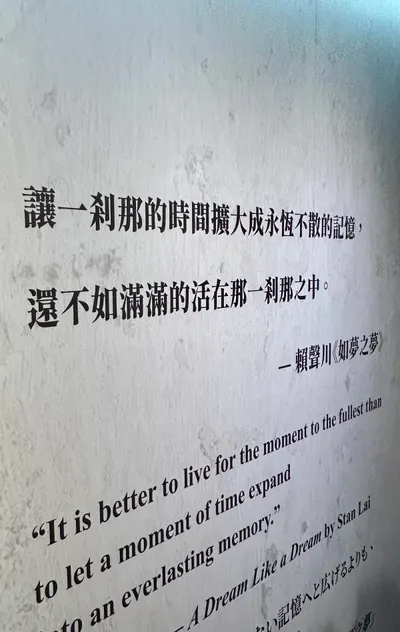 讓一剎那的時間擴大成永恆不散的記憶，
還不如滿滿的活在那一剎那之中。
— 賴聲川《如夢之夢》
“It is better to live for the moment to the fullest than
to let a moment of time expand
to an everlasting memory.”
— A Dream Like a Dream by Stan Lai
ない記憶へと広げるよりも、